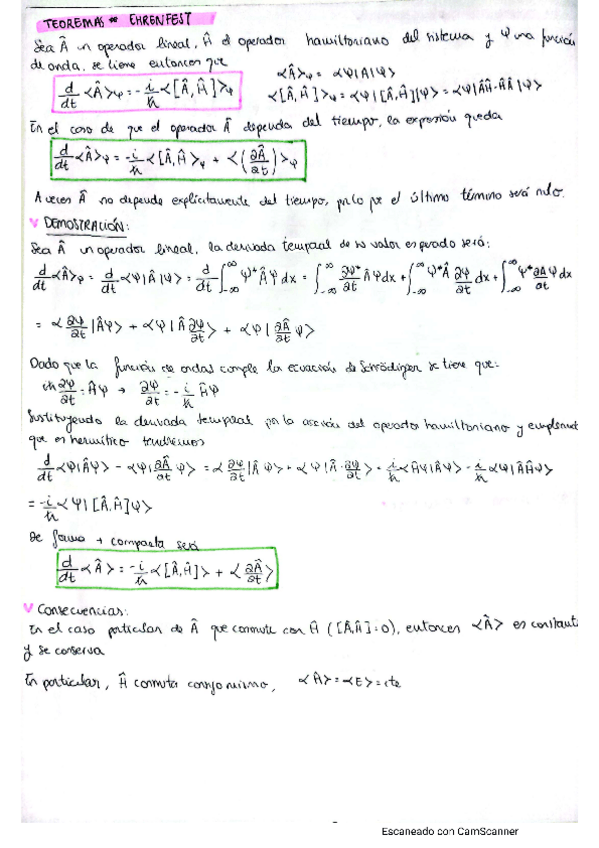 TEOREMAS EHRENFEST
Sea Â un operador lineal, Ĥ el operador hamiltoniano del sistema y Ψ una función
de onda, se tiene entonces que
d/dt <Â>ψ = -i/ħ <[Â,Ĥ]>ψ
<Â>ψ = <Ψ|A|Ψ>
<[Â,Ĥ]>ψ = <Ψ|[Â,Ĥ]|Ψ> = <Ψ|ÂĤ-ĤÂ|Ψ>
En el caso de que el operador Â dependa del tiempo, la expresión queda
d/dt <Â>ψ = -i/ħ <[Â,Ĥ]>ψ + <(∂Â/∂t)>ψ
A veces Â no depende explícitamente del tiempo, por lo que el último término será nulo.
DEMOSTRACIÓN:
Sea Â un operador lineal, la derivada temporal de su valor esperado será:
d/dt <Â>ψ = d/dt <Ψ|Â|Ψ> = d/dt ∫_-∞^∞ Ψ* Â Ψ dx = ∫_-∞^∞ ∂Ψ*/∂t Â Ψ dx + ∫_-∞^∞ Ψ* Â ∂Ψ/∂t dx + ∫_-∞^∞ Ψ* ∂Â/∂t Ψ dx
= <∂Ψ/∂t |ÂΨ> + <Ψ|Â ∂Ψ/∂t> + <Ψ| ∂Â/∂t Ψ>
Dado que la función de ondas cumple la ecuación de Schrödinger se tiene que:
iħ ∂Ψ/∂t = ĤΨ → ∂Ψ/∂t = -i/ħ ĤΨ
Sustituyendo la derivada temporal por la acción del operador hamiltoniano y
que es hermítico tendremos
d/dt <Ψ|ÂΨ> - <Ψ| ∂Â/∂t Ψ> = <∂Ψ/∂t |ÂΨ> + <Ψ|Â·∂Ψ/∂t> = i/ħ <ĤΨ|ÂΨ> - i/ħ <Ψ|ÂĤΨ>
= -i/ħ <Ψ|[Â,Ĥ]Ψ>
De forma + compacta será
d/dt <Â> = -i/ħ <[Â,Ĥ]> + <∂Â/∂t>
Consecuencias:
En el caso particular de Â que conmute con Ĥ ([Â,Ĥ]=0), entonces <Â> es constante
y se conserva
En particular, Ĥ conmuta consigo mismo, <Ĥ> = <E> = cte
Escaneado con CamScanner